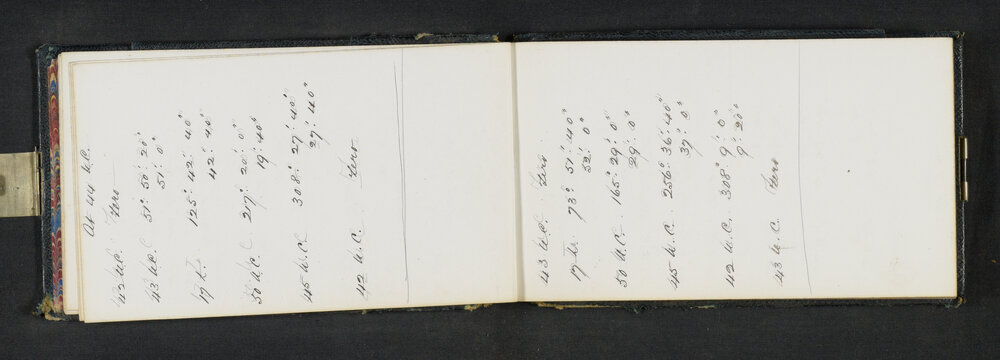 At 44 U.C.
42 U.C. Zero
43 U.C. 51° 50' 20"
51' 0"
17 Tr. 125° 42' 40"
42' 40"
50 U.C. 217° 20' 0"
19' 40"
45 U.C. 308° 27' 40"
27' 40"
42 U.C. Zero
43 U.C. Zero
17 Tr. 73° 51' 40"
52' 0"
50 U.C. 165° 29' 0"
29' 0"
45 U.C. 256° 36' 40"
37' 0"
42 U.C. 308° 9' 0"
9' 20"
43 U.C. Zero